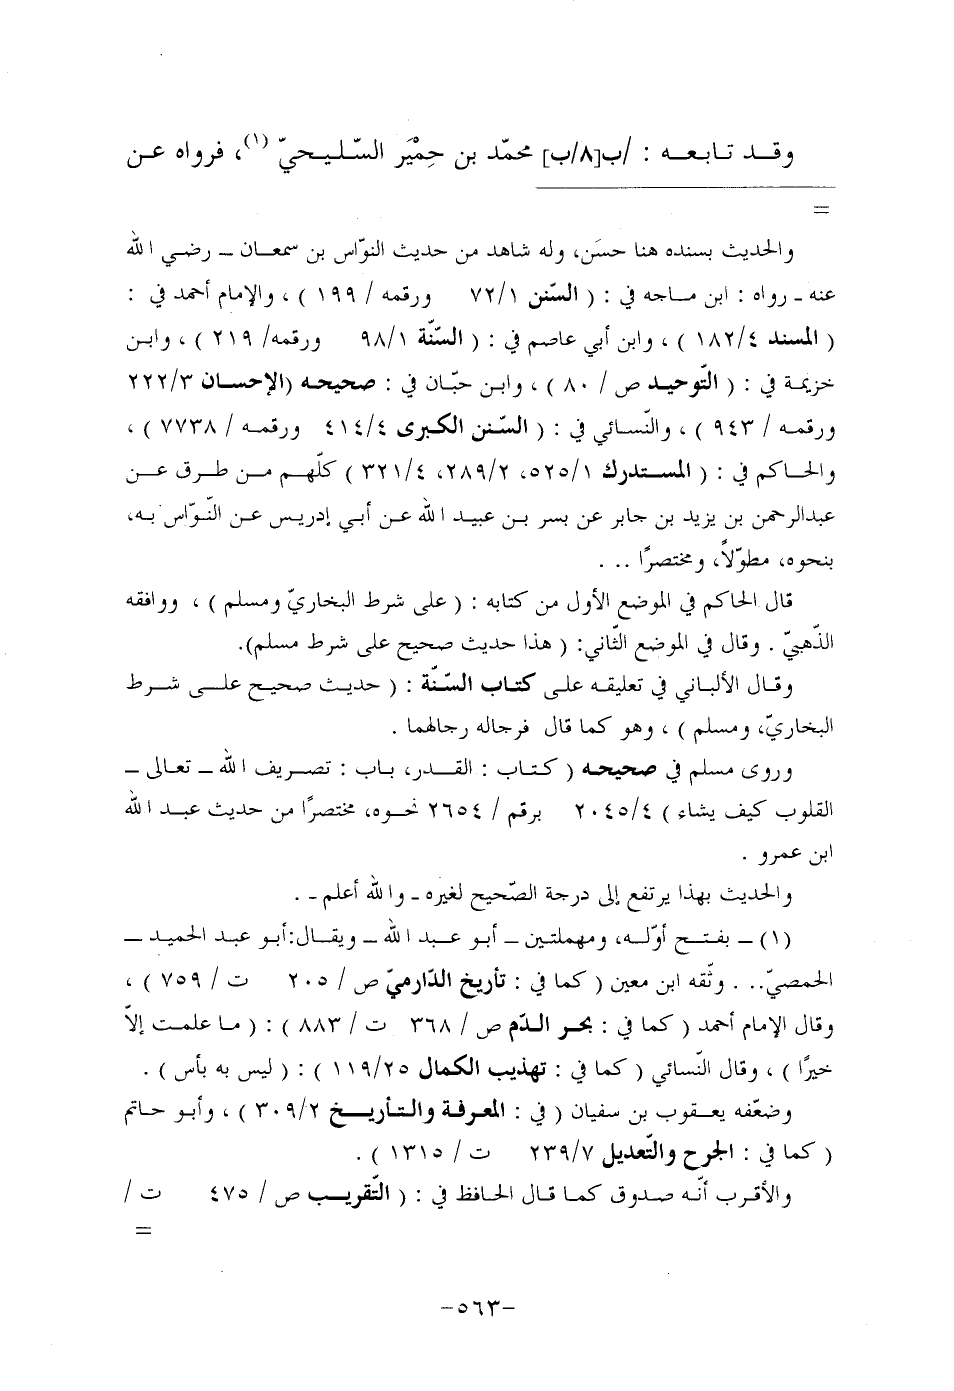 وقـد تـابعـه : /ب[٨/ب] محمّد بن حِمْيَر السّـليـحيّ (١)، فرواه عـن
=
والحديث بسنده هنا حسَن، وله شاهد من حديث النوّاس بن سمعان ــ رضي الله
عنه ـ رواه : ابن مـاجه في : ( السّنن ٧٢/١ ورقمه / ١٩٩ ) ، والإمام أحمد في :
( المسند ١٨٢/٤ ) ، وابن أبي عاصم في : ( السّنّة ٩٨/١ ورقمه/ ٢١٩ ) ، وابـن
خزيمة في : ( التّوحيـد ص / ٨٠ ) ، وابـن حبّـان في : صحيحـه (الإحسـان ٢٢٢/٣
ورقمـه / ٩٤٣ ) ، والنّسـائي في : ( السّـنن الكبرى ٤١٤/٤ ورقمـه / ٧٧٣٨ ) ،
والحـاكم في : ( المسـتدرك ٥٢٥/١، ٢٨٩/٢، ٣٢١/٤ ) كلّهـم مـن طـرق عـن
عبدالرحمن بن يزيد بن جابر عن بسر بـن عبيـد الله عن أبي إدريس عـن النّواس به،
بنحوه، مطوّلاً، ومختصرًا .. .
قال الحاكم في الموضع الأول من كتابه : ( على شرط البخاريّ ومسلم ) ، ووافقه
الذّهبيّ . وقال في الموضع الثّاني: ( هذا حديث صحيح على شرط مسلم).
وقـال الألبـاني في تعليقـه علـى كتـاب السّنّة : ( حديـث صحيـح علـى شـرط
البخاريّ، ومسلم ) ، وهو كما قال فرجاله رجالهما .
وروى مسلم في صحيحـه ( كتـاب : القـدر، بـاب : تصـريف الله ــ تعـالى ــ
القلوب كيف يشاء ) ٢٠٤٥/٤ برقم / ٢٦٥٤ نحـوه، مختصرًا من حديث عبـد الله
ابن عمرو .
والحديث بهذا يرتفع إلى درجة الصّحيح لغيره ـ والله أعلم ـ .
(١) ــ بفتـح أوّلـه، ومهملتين ــ أبـو عبـد الله ــ ويقـال:أبـو عبـد الحميـد ــ
الحمصيّ.. . وثّقه ابن معين ( كما في : تأريخ الدّارميّ ص / ٢٠٥ ت / ٧٥٩ ) ،
وقال الإمام أحمد ( كما في : بحر الـدّم ص / ٣٦٨ ت / ٨٨٣ ) : ( مـا علمـت إلاّ
خيرًا ) ، وقال النّسائي ( كما في : تهذيب الكمال ١١٩/٢٥ ) : ( ليس به بأس ) .
وضعّفه يعـقوب بن سفيان ( في : المعرفة والتـأريـخ ٣٠٩/٢ ) ، وأبـو حـاتم
( كما في : الجرح والتّعديل ٢٣٩/٧ ت / ١٣١٥ ) .
والأقـرب أنّـه صـدوق كمـا قـال الحـافظ في : ( التّقريـب ص / ٤٧٥ ت /
=
-٥٦٣-